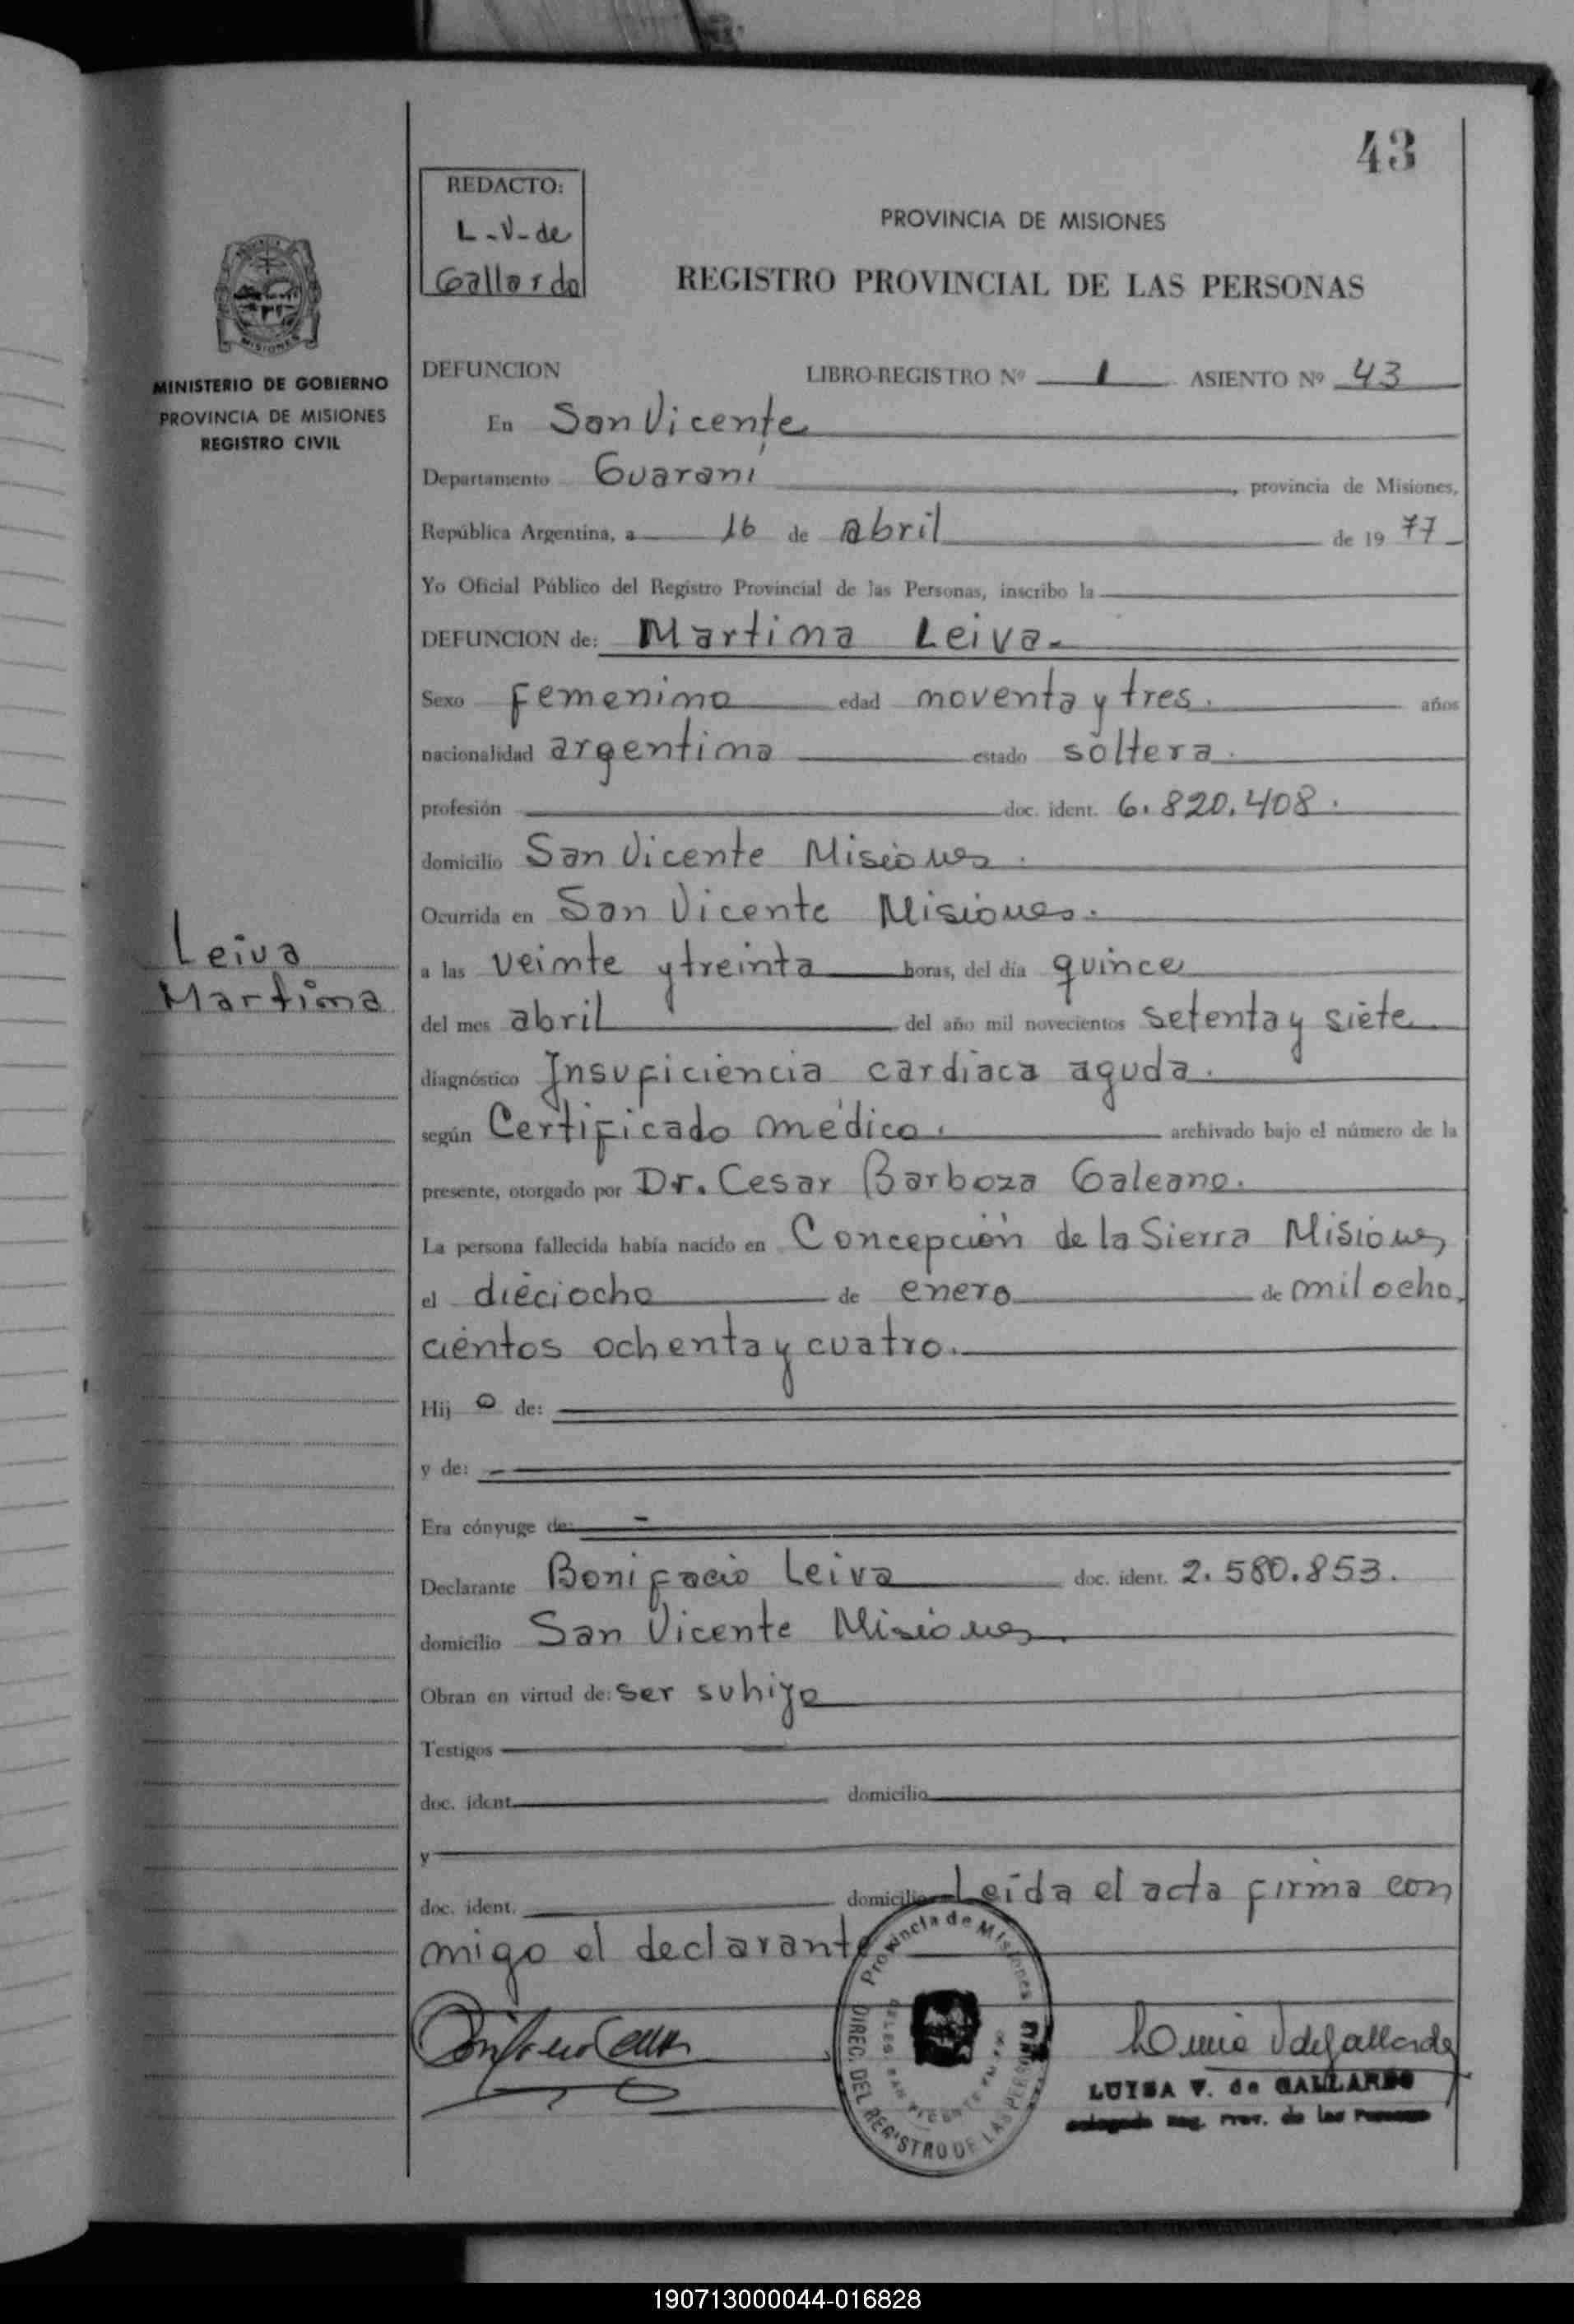 43
REDACTO:
L-V-de
Gallardo
PROVINCIA DE MISIONES
REGISTRO PROVINCIAL DE LAS PERSONAS
MISIONES
MINISTERIO DE GOBIERNO
PROVINCIA DE MISIONES
REGISTRO CIVIL
DEFUNCION LIBRO-REGISTRO Nº 1 ASIENTO Nº 43
En San Vicente
Departamento Guaraní, provincia de Misiones,
República Argentina, a 16 de abril de 1977
Yo Oficial Público del Registro Provincial de las Personas, inscribo la
DEFUNCION de: Martina Leiva.
Sexo femenino edad noventa y tres. años
nacionalidad argentina estado soltera.
profesión doc. ident. 6.820.408.
domicilio San Vicente Misiones.
Ocurrida en San Vicente Misiones.
Leiva
Martina
a las veinte y treinta horas, del día quince
del mes abril del año mil novecientos setenta y siete
diagnóstico Insuficiencia cardiaca aguda.
según Certificado médico. archivado bajo el número de la
presente, otorgado por Dr. Cesar Barboza Galeano.
La persona fallecida había nacido en Concepción de la Sierra Misiones
el dieciocho de enero de mil ocho
cientos ochenta y cuatro.
Hij o de:
y de:
Era cónyuge de:
Declarante Bonifacio Leiva doc. ident. 2.580.853.
domicilio San Vicente Misiones.
Obran en virtud de: ser su hijo
Testigos
doc. ident. domicilio
y
doc. ident. domicilio Leída el acta firma con
migo el declarante
Provincia de Misiones
DIREC. DEL REGISTRO DE LAS PERSONAS
DELEG. SAN VICENTE
LUISA V. de GALLARDO
Delegada Reg. Prov. de las Personas
190713000044-016828